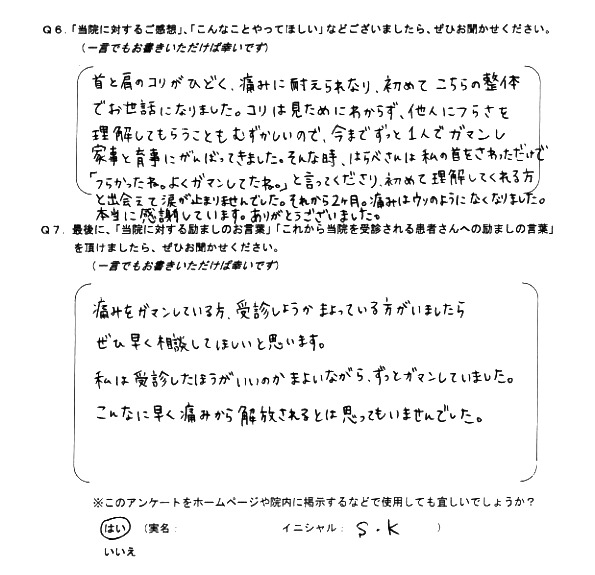 Q6.「当院に対するご感想」、「こんなことやってほしい」などございましたら、ぜひお聞かせください。
（一言でもお書きいただけば幸いです）
首と肩のコリがひどく、痛みに耐えられなり、初めてこちらの整体
でお世話になりました。コリは見ためにわからず、他人につらさを
理解してもらうこともむずかしいので、今までずっと1人でガマンし
家事と育事にがんばってきました。そんな時、はらべさんは私の首をさわっただけで
「つらかったね。よくガマンしてたね。」と言ってくださり、初めて理解してくれる方
と出会えて涙が止まりませんでした。それから2ヶ月。痛みはウソのようになくなりました。
本当に感謝しています。ありがとうございました。
Q7. 最後に、「当院に対する励ましのお言葉」「これから当院を受診される患者さんへの励ましの言葉」
を頂けましたら、ぜひお聞かせください。
（一言でもお書きいただけば幸いです）
痛みをガマンしている方、受診しようかまよっている方がいましたら
ぜひ早く相談してほしいと思います。
私は受診したほうがいいのかまよいながら、ずっとガマンしていました。
こんなに早く痛みから解放されるとは思ってもいませんでした。
※このアンケートをホームページや院内に掲示するなどで使用しても宜しいでしょうか？
はい （実名： イニシャル： S.K ）
いいえ